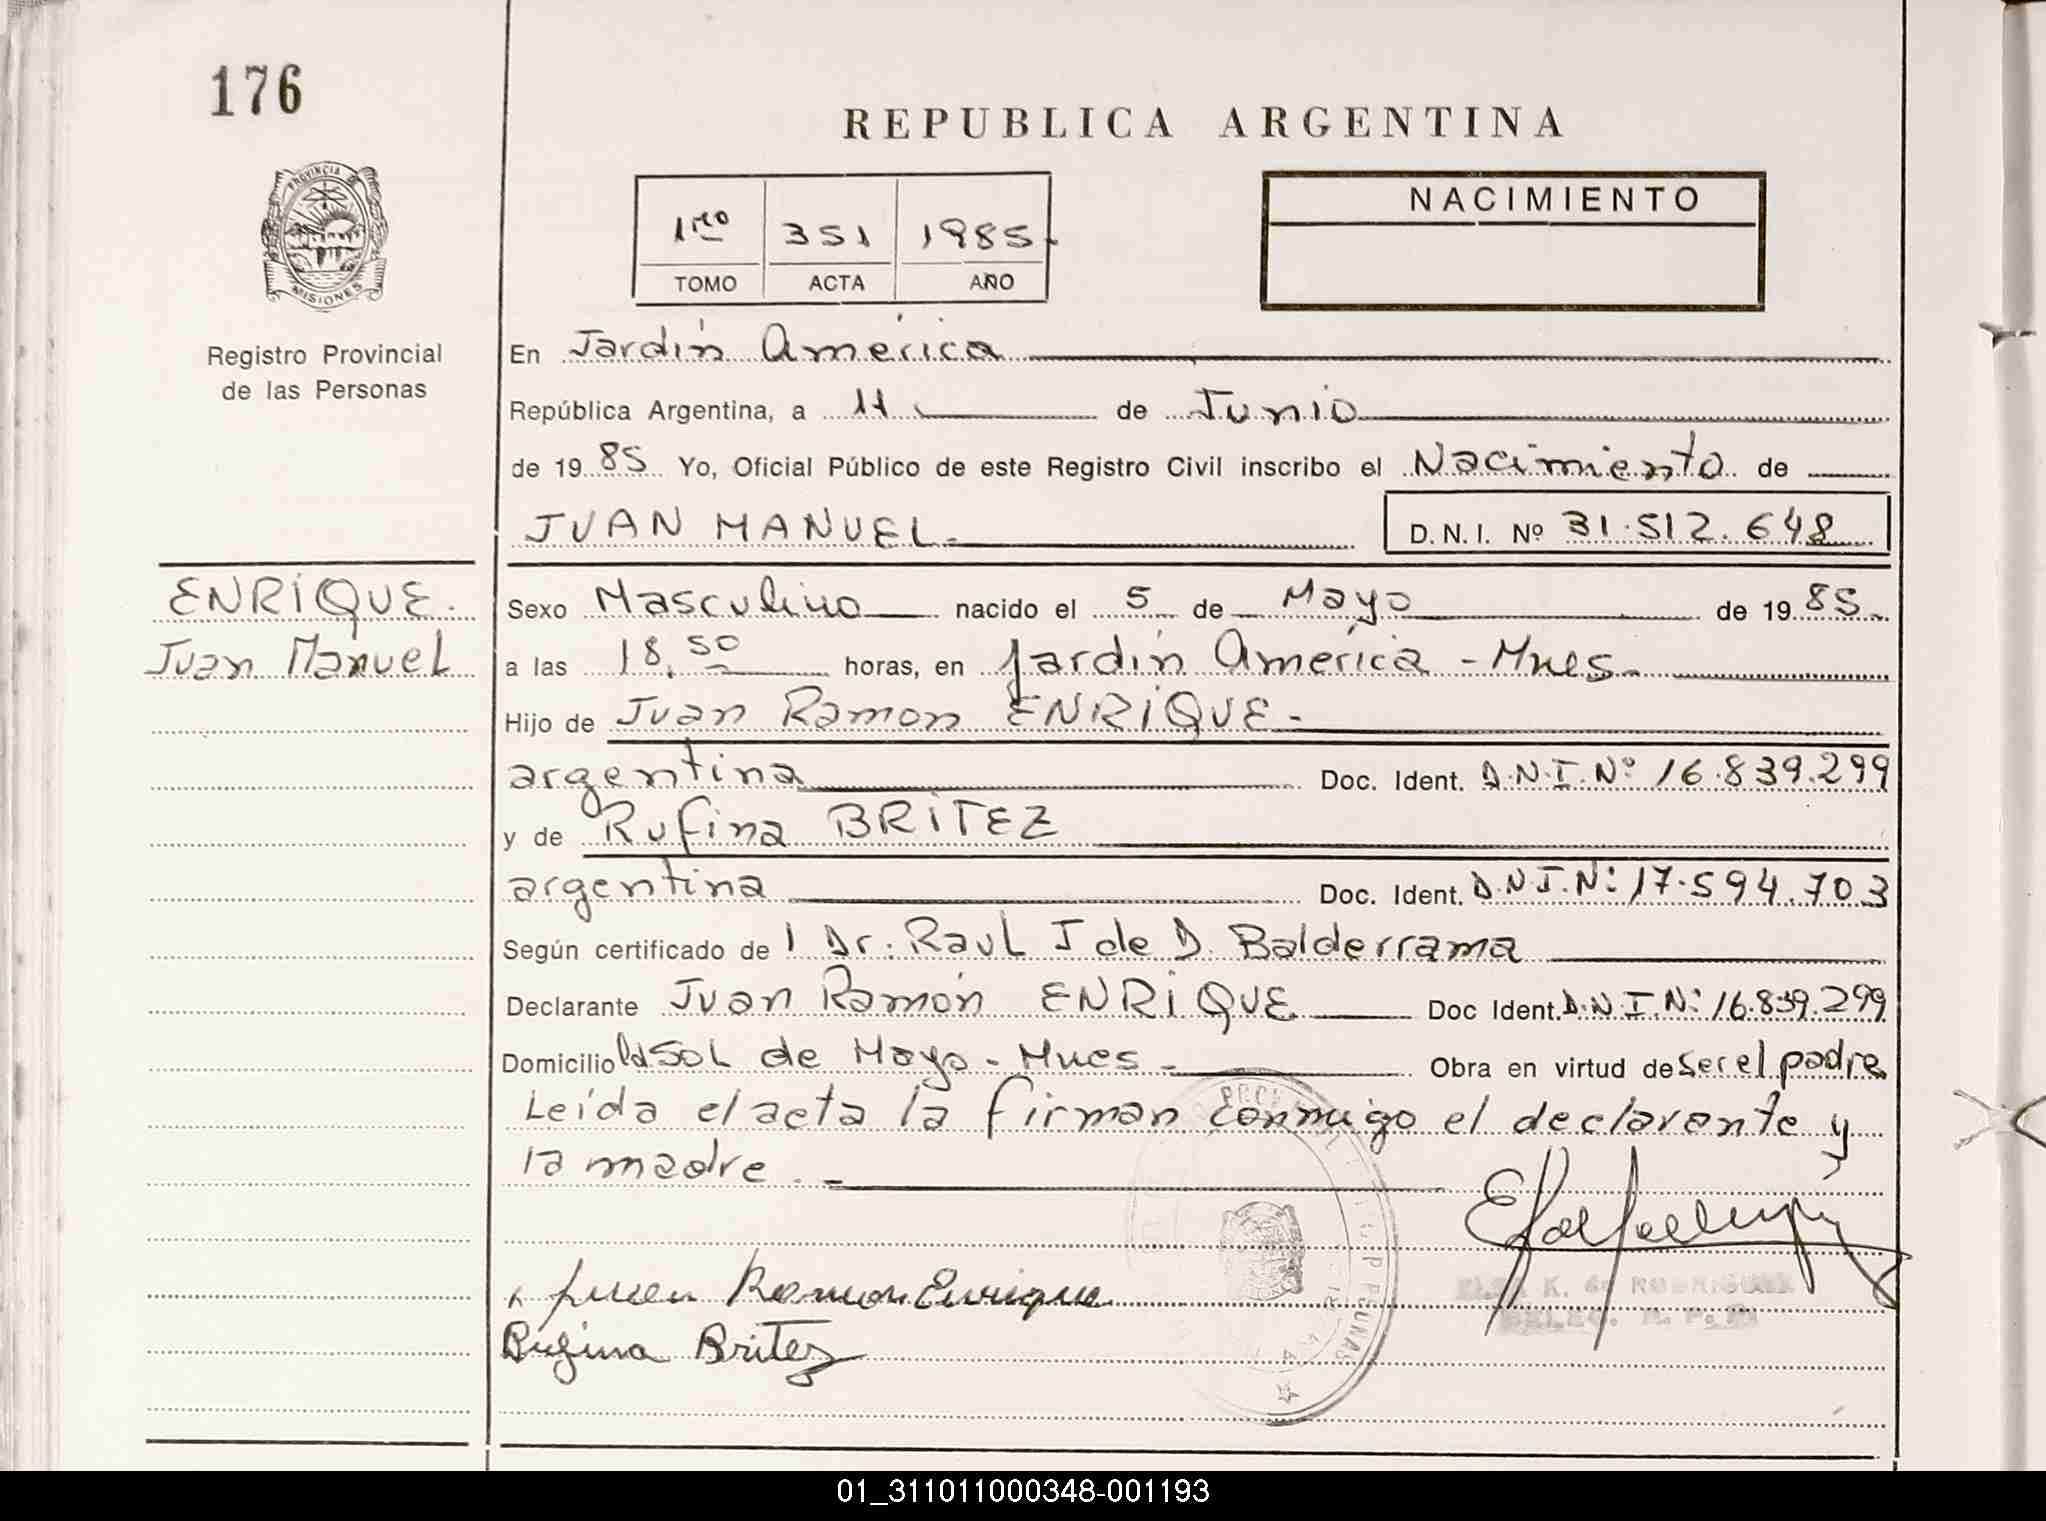 176
REPUBLICA ARGENTINA
PROVINCIA DE
MISIONES
Registro Provincial
de las Personas
1ro 351 1985.
TOMO ACTA AÑO
NACIMIENTO
En Jardín América
República Argentina, a 11 de Junio
de 1985 Yo, Oficial Público de este Registro Civil inscribo el Nacimiento de
JUAN MANUEL.
D.N.I. Nº 31.512.648
ENRIQUE.
Juan Manuel
Sexo Masculino nacido el 5 de Mayo de 1985.
a las 18,50 horas, en Jardín América - Mnes.
Hijo de Juan Ramon ENRIQUE.
argentina Doc. Ident. D.N.I.Nº 16.839.299
y de Rufina BRITEZ
argentina Doc. Ident. D.N.I.Nº 17.594.703
Según certificado de l Dr. Raul J de D. Balderrama
Declarante Juan Ramón ENRIQUE Doc Ident. D.N.I.Nº 16.839.299
Domicilio Sol de Mayo - Mnes. Obra en virtud de ser el padre
Leída el acta la firman conmigo el declarante y
la madre.
Juan Ramon Enrique
Rufina Britez
K. de RODRIGUEZ
DELEG. R. P. P.
01_311011000348-001193